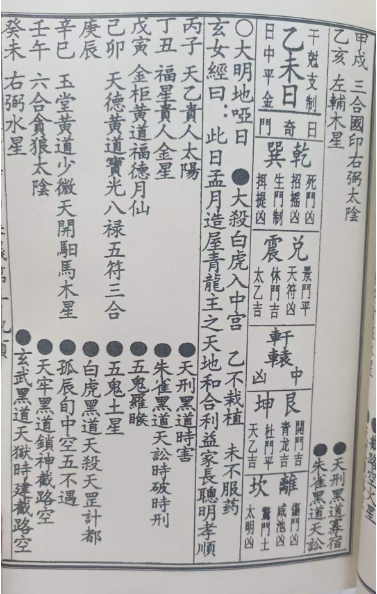 甲戌 三合國印右弼太陰 ●天刑黑道寡宿
乙亥 左輔木星 ●朱雀黑道天訟
干尅支制日
乙未日
日中平金
奇門
乾
死門凶
招搖凶
巽
生門制
提凶
兌
景門平
天符凶
震
休門吉
太乙吉
中
軒轅
凶
艮
開門吉
青龍吉
坤
杜門平
天乙吉
離
傷門凶
咸池凶
坎
驚門土
太明凶
○大明地啞日 ●大殺白虎入中宮 乙不栽植 未不服药
玄女經曰：此日孟月造屋青龍主之天地和合利益家長聰明孝順
丙子 天乙貴人太陽 ●天刑黑道時害
丁丑 福星貴人金星 ●朱雀黑道天訟時破時刑
戊寅 金柜黃道福德月仙 ●五鬼羅睺
己卯 天德黃道寶光八禄五符三合 ●五鬼土星
庚辰 ●白虎黑道天殺天罡計都
辛巳 玉堂黃道少微天開馹馬木星 ●孤辰旬中空五不遇
壬午 六合貪狼太陰 ●天牢黑道鎖神截路空
癸未 右弼水星 ●玄武黑道天獄時建截路空